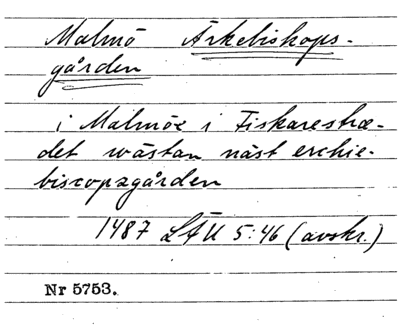 Malmö Ärkebiskops-
gården
i Malmöe i Fiskarestræ-
det wästan näst erchie-
biscopzgården
1487 LÄU 5:46 (avskr.)
Nr 5753.